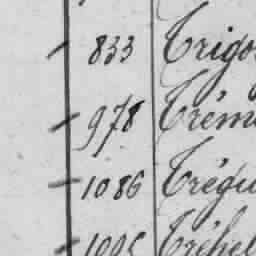 833 Trigo
978 Trém
1086 Trégu
1095 Tréhel